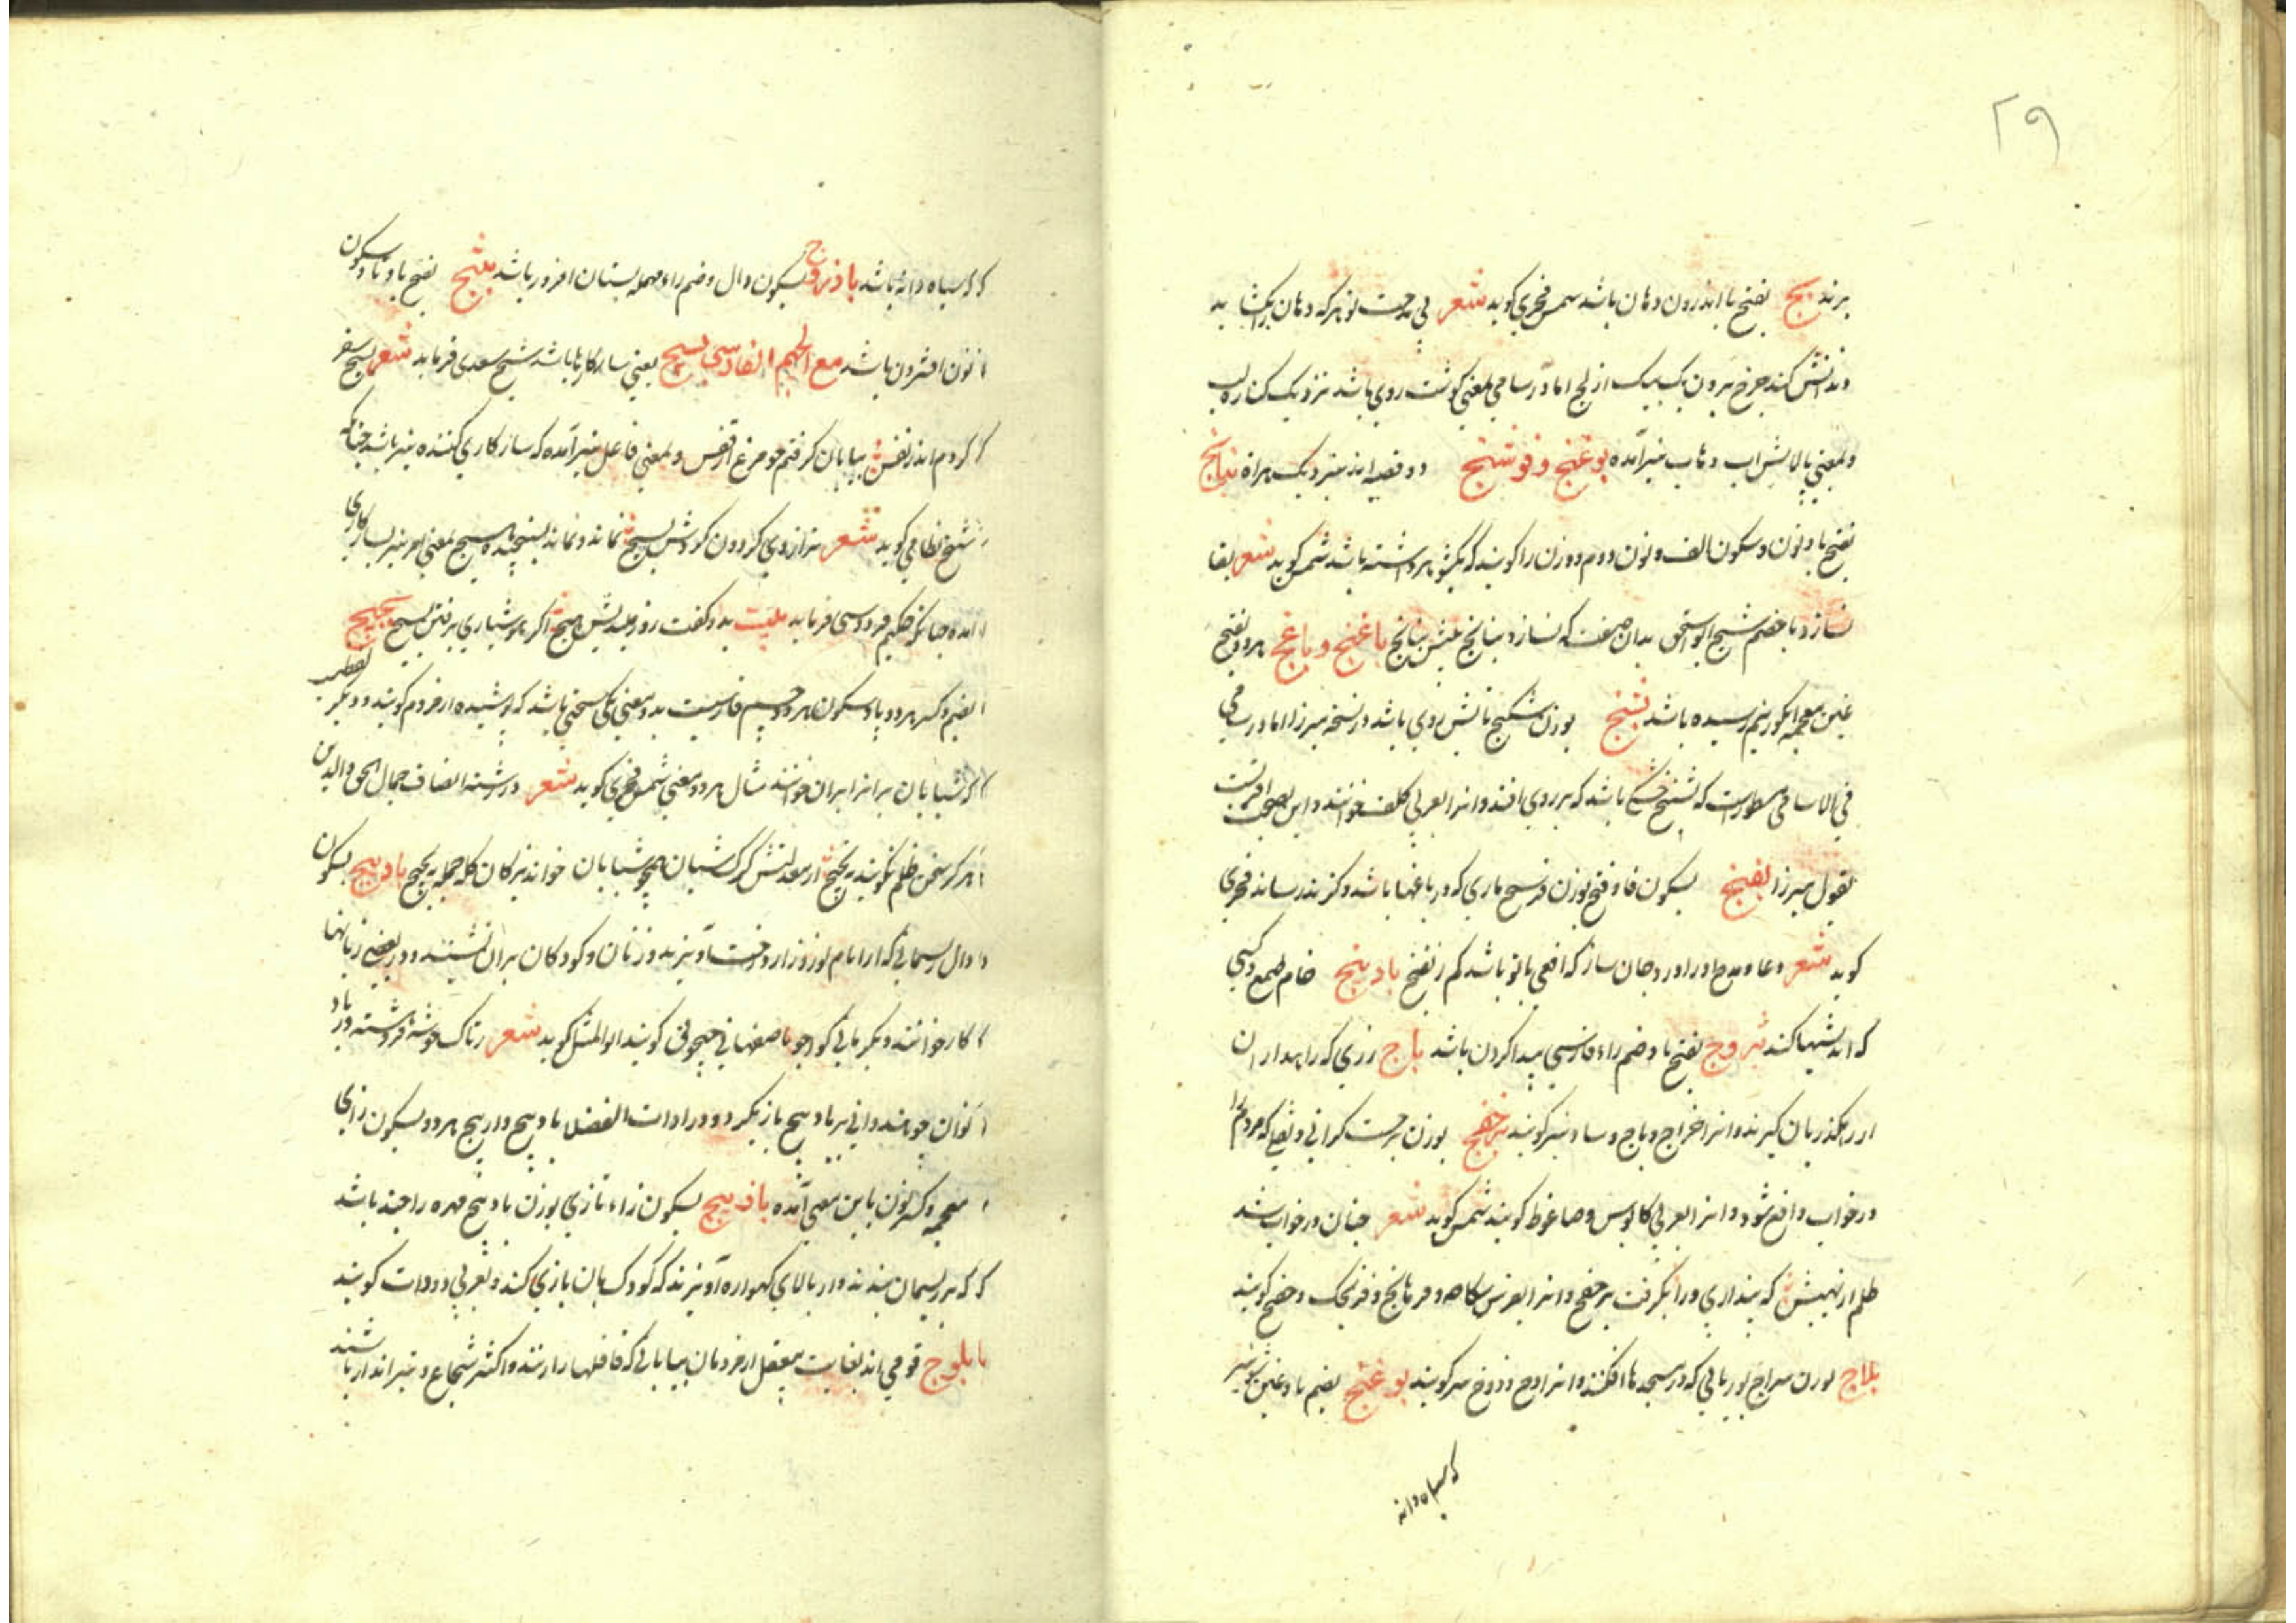 ۲۹
برند بج بفتح با اندرون دهان باشد شمس فخری کوید شعر بی مدحت تو هر که دهان را بکشاید
دندانش کند چرخ برون یک بیک از بج اما در سامی بمعنی کوشت روی باشد نزدیک کناره لب
و بمعنی پالایش اب و ناب نیز آمده بوغنج و فوشنج دو قصبه اند نزدیک هراة بنانج
بفتح با و نون و سکون الف و نون دوم دو زن را کویند که یکشوهر داشته باشد شمس کوید شعر بقا
نسازد با خصم شیخ ابو اسحق بدان صفت که نسازد بنانج پیش بنانج باغنج و باغج هر دو بفتح
غین معجمه انکور نیم رسیده باشد بشنج بوزن شکنج تابش روی باشد در نسخه میرزا اما در سامی
فی الاسامی مسطورست که باشد که بر روی افتد و انرا بعربی کلف خوانند و این بصحت اقربست
بقول میرزا بفنج بسکون فا و فتح بوزن ماری که در باغها باشد و کزند نرساند فخری
کوید شعر دعا و مدح طا و را ورد جان ساز که افعی با تو باشد کم ز بفنج بادرنج خام طمع و کسی
که اندیشها کند بزوج بفتح با و ضم راء فارسی پیدا کردن باشد باج زری که راهداران
از راهکذریان کیرند و انرا خراج و باج و ساو نیز کویند برخفج بوزن برجست کرانی و ثقلی که مردم را
در خواب واقع شود و انرا بعربی کابوس و ضاغوط کویند شمس کوید شعر چنان در خواب شد
ظلم از نهیبش که پنداری ورا بکرفت برخفج و انرا بفرس سکاهه و فرهانج و فرنجک و خفج کویند
بلاج بوزن سراج بوریائی که در مسجدها افکنند و انرا دوخ و زوخ نیز کویند بوغنج بضم با و غین شونیز
که سیاه دانه
که سیاه دانه باشد باذروج بسکون دال و ضم راء مهمله بستان افروز باشد بشنج بفتح با و تا و سکون
نون افشردن باشد مع الجیم الفارسی بسیج یعنی ساز کارها باشد شیخ سعدی فرماید شعر بسیج سفر
کردم اندر نفس بیابان کرفتم چو مرغ از قفس و بمعنی فاعل نیز آمده که ساز کاری کننده نیز باشد چنانکه
شیخ نظامی کوید شعر ترازوی کردون کردش بسیج نماند و نماند بسنجیده هیچ بمعنی امر نیز بسیار کاری
آمده چنانکه حکیم فردوسی فرماید بیت بدو کفت روز میندیش هیچ اکر هوشیاری برفتن بسیج بجبج
بضم و کسر هر دو با و سکون هر دو جیم فارسیست بدو معنی یکی سخنی باشد که پوشیده از مردم کویند و دیکر لفظیست
که شبانان بز را بدان خوانند مثال هر دو معنی شمس فخری کوید شعر در رشته انصاف جمال الحق والدین
هرکز سخن ظلم نکویند به بجبج از معدلتش کرک شبان همچو شبانان خواند بزکان کله جمله به بجبج بادپیچ بسکون
دال ریسمانی که در ایام نوروز از درخت آویزند و زنان و کودکان بر ان نشینند و در بعضی زبانها
کاز خوانند و دیکر تابی کواچو باصفهانی چنچولی کویند ابو المثل کوید شعر زتاک خوشه فروهشته و زباد
نوان چو هندوانی بر بادپیچ بازیکر و در ادات الفضلا بادپیچ و ازپیچ هر دو بسکون زای
معجمه و کسر نون باین معنی آمده بازپیچ بسکون زاء تازی بوزن بادپیچ مهره را چند باشد
که که بریسمان بندند و از بالای کهواره آویزند که کودک بان بازی کند و بعربی دودات کویند
بلوچ قومی اند بغایت بیعقل از مردمان بیابانی که قافلها را زنند و اکثر شجاع و تیرانداز باشند